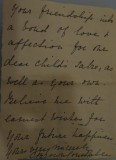 Your friendship is
a bond of love &
affection for the
dear child's sake, as
well as your own.
Believe me with
earnest wishes for
your future happiness
Yours very sincerely